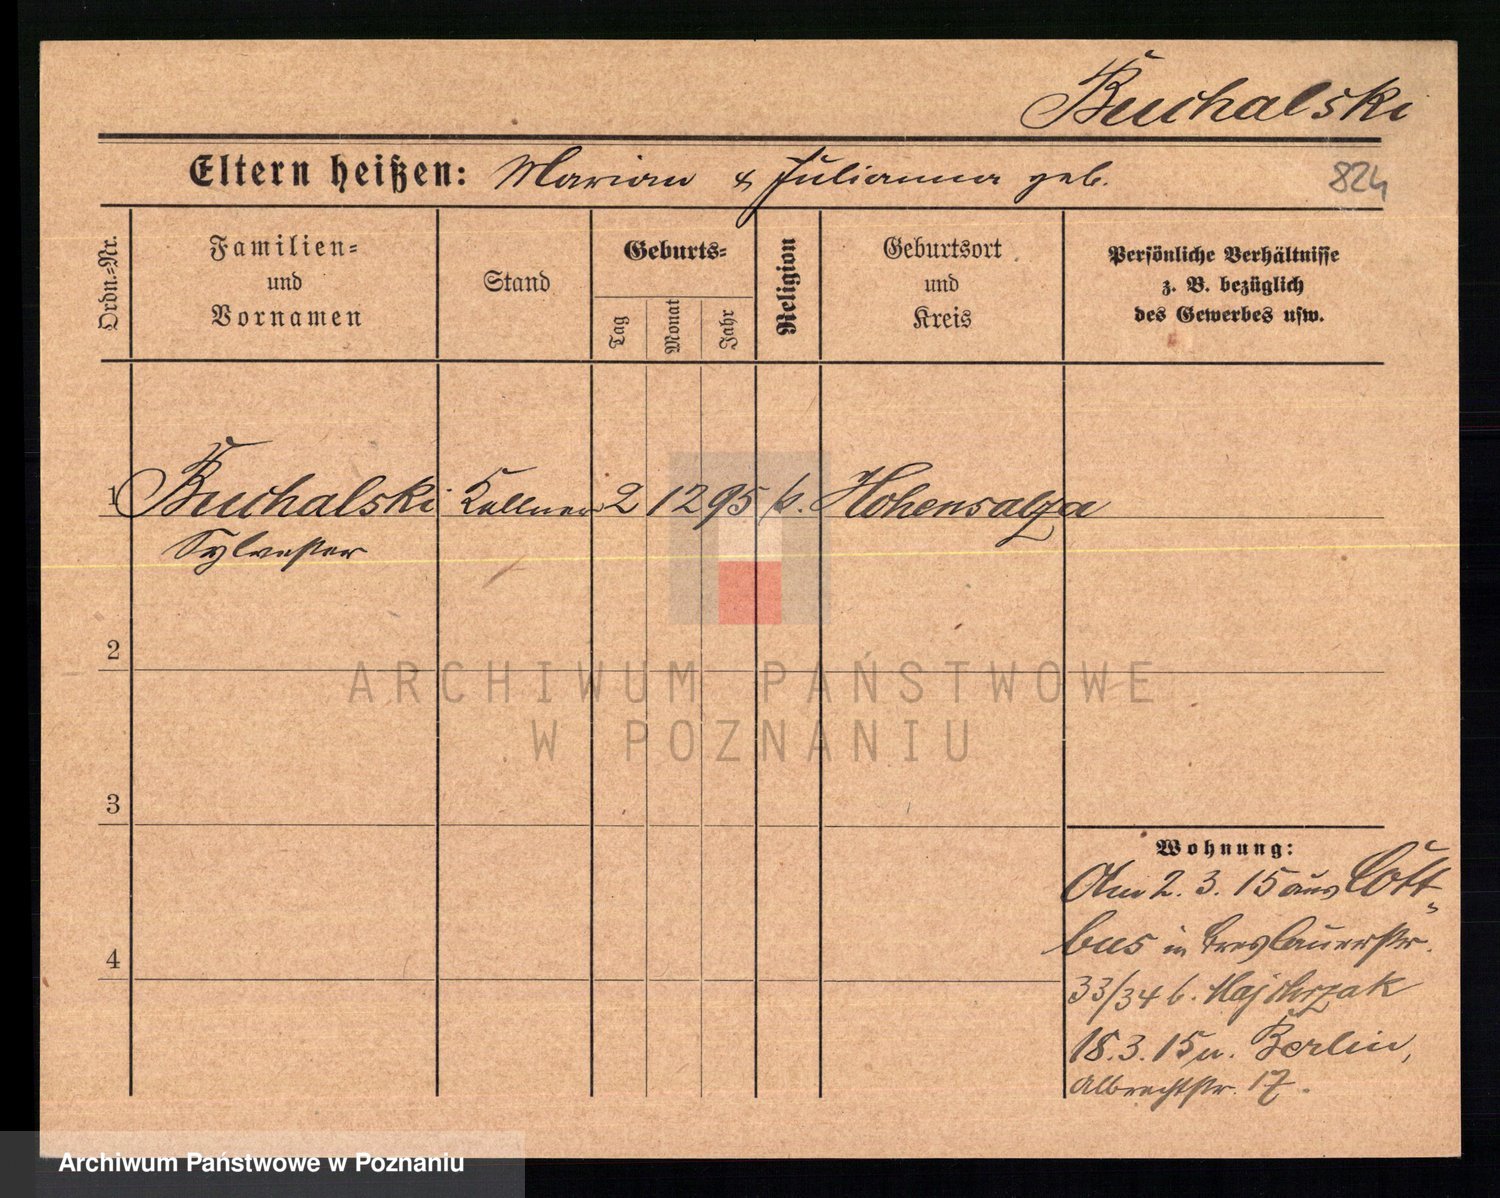 Buchalski
Eltern heißen: Marian & Julianna geb.
824
Ordn.=Nr.
Familien=
und
Vornamen
Stand
Geburts=
Tag
Monat
Jahr
Religion
Geburtsort
und
Kreis
Persönliche Verhältnisse
z. B. bezüglich
des Gewerbes usw.
1 Buchalski Kellner 2 12 95 k. Hohensalza
Sylvester
2
3
4
Wohnung:
Am 2. 3. 15 aus Cott-
bus in Breslauerstr.
33/34 b. Majchrzak
18. 3. 15 n. Berlin,
Albrechtstr. 17.
ARCHIWUM PAŃSTWOWE
W POZNANIU
Archiwum Państwowe w Poznaniu